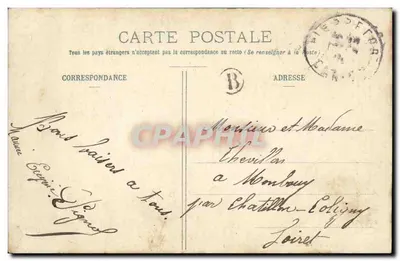 CARTE POSTALE
Tous les pays étrangers n'acceptent pas la correspondance au recto (Se renseigner à la poste)
CORRESPONDANCE
ADRESSE
B
Bons baisers a tous.
Eugénie
Monsieur et Madame
Thevillas
a Monbouy
par Chatillon-Coligny
Loiret
PRPhoto